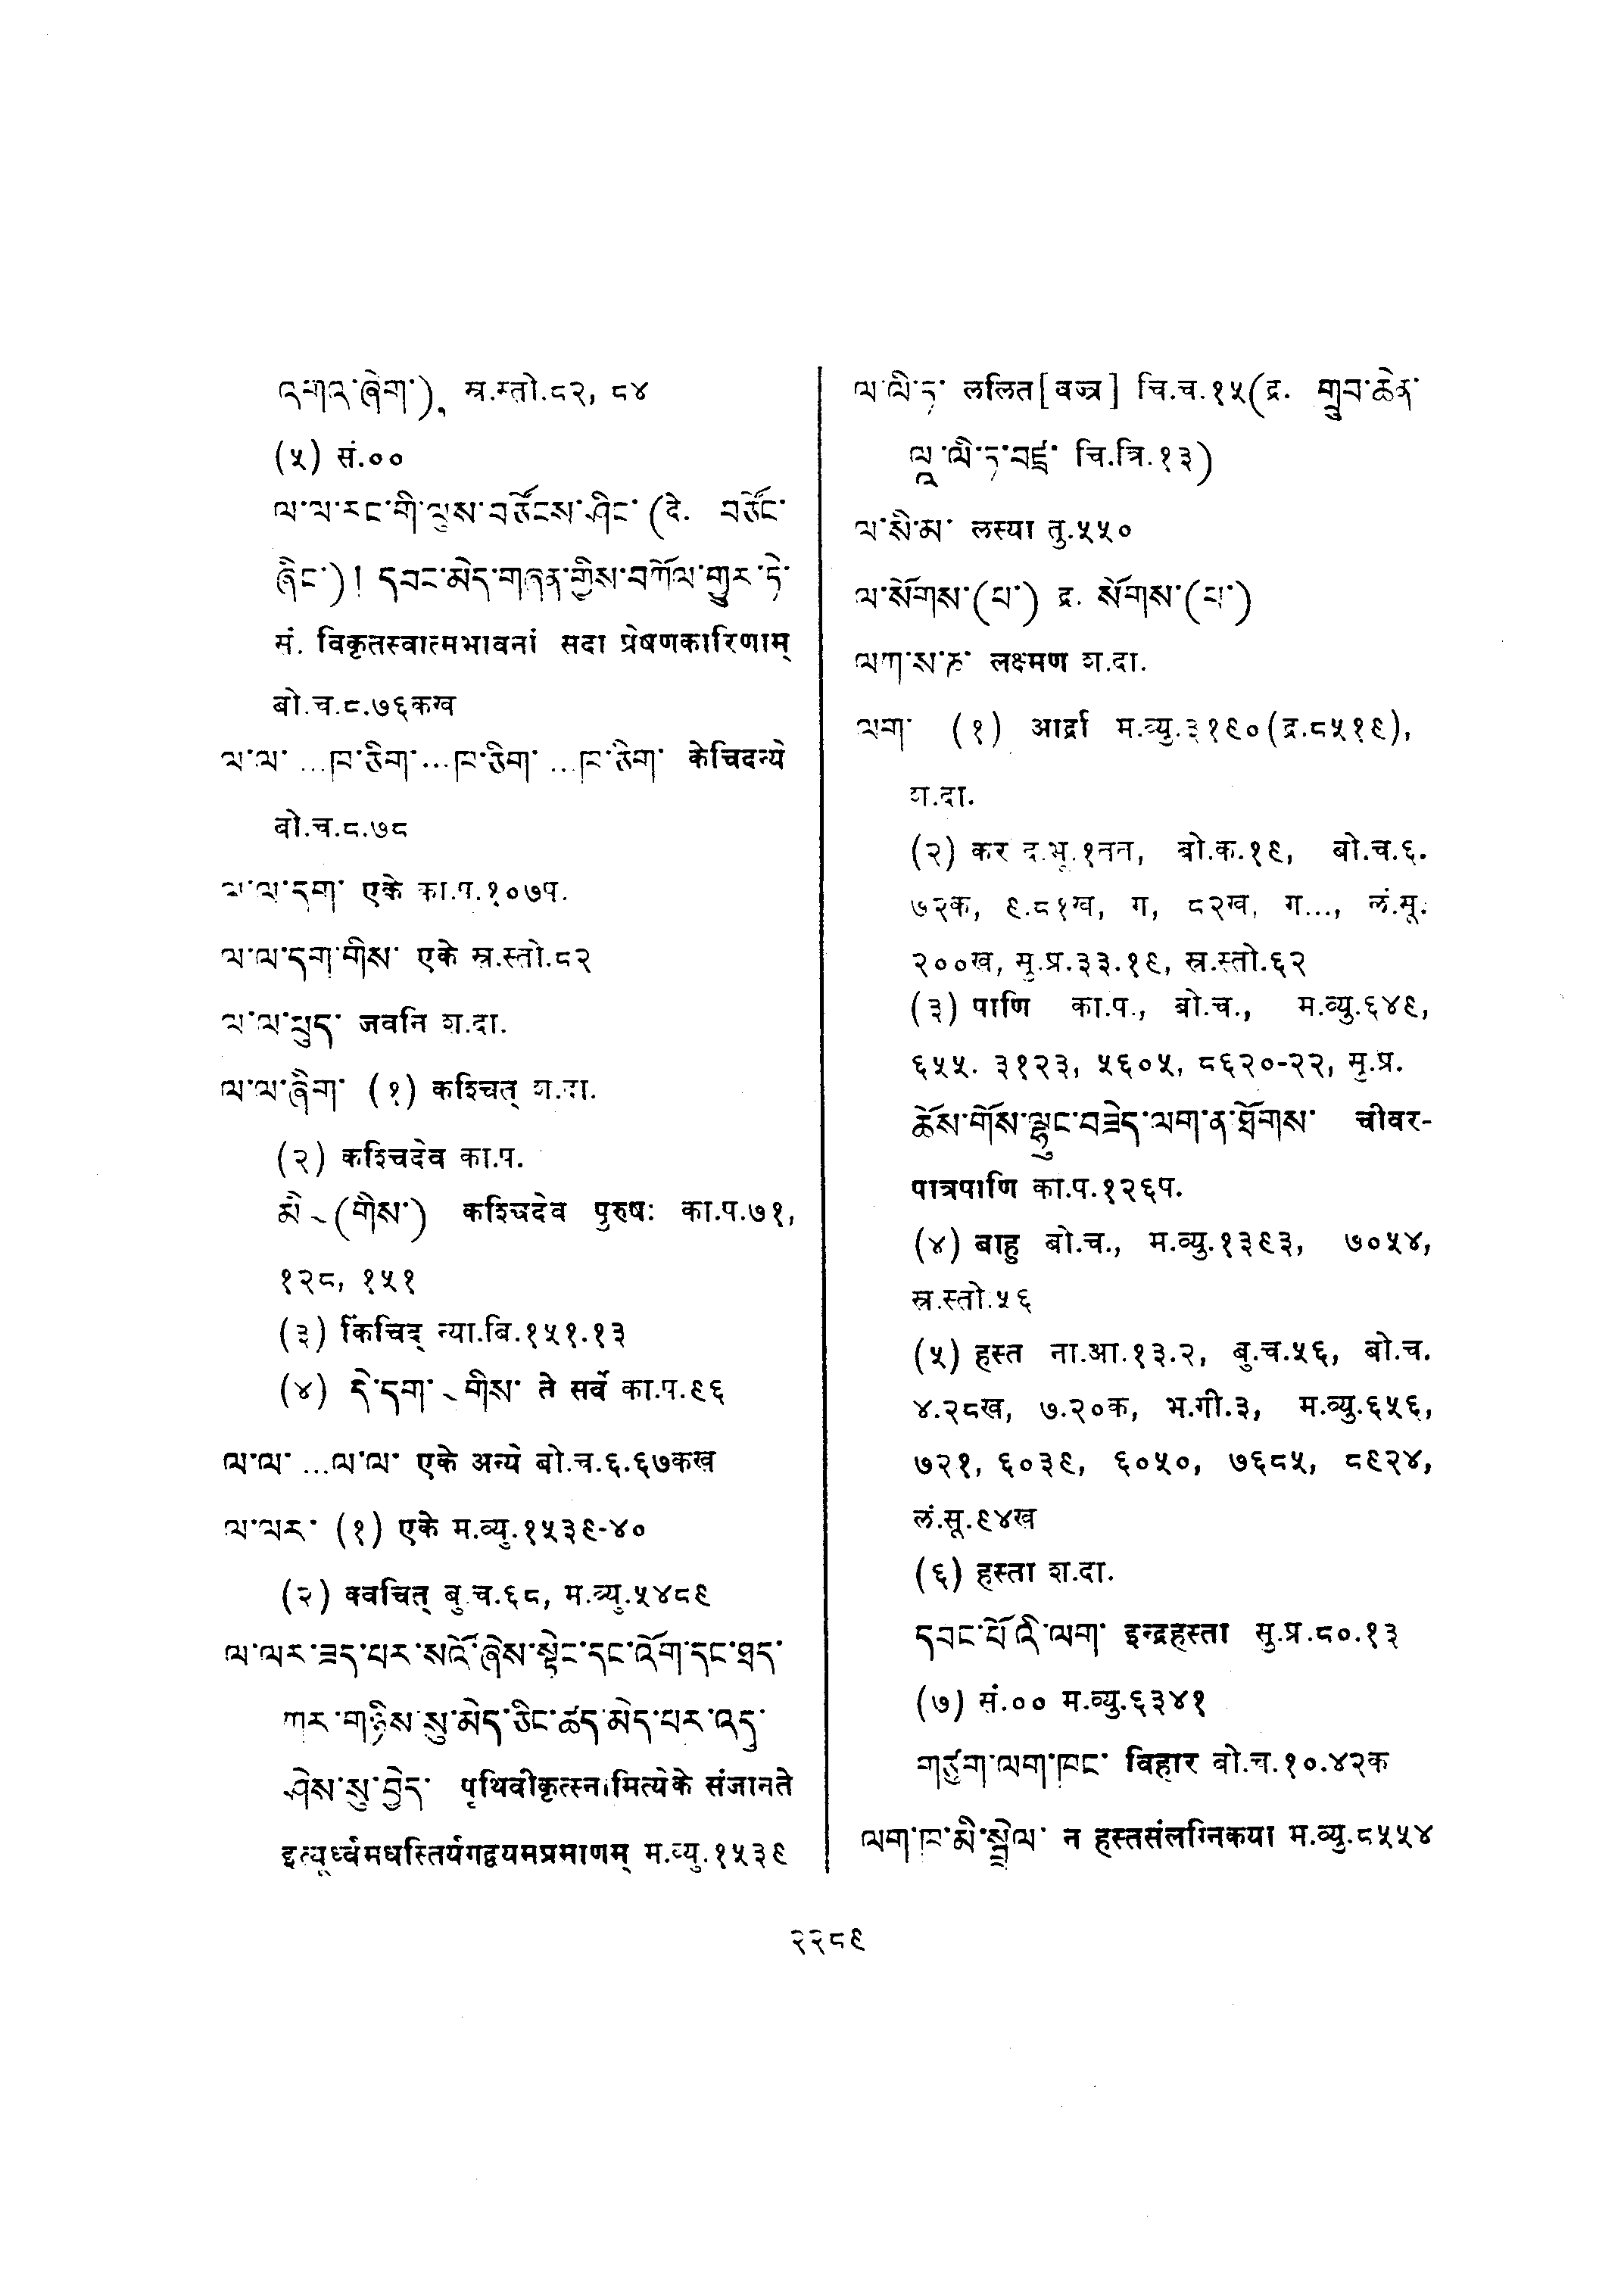 འགའ་ཞིག་), स्र.स्तो.८२, ८४
(५) सं.००
ལ་ལ་རང་གི་ལུས་བཙོངས་ཤིང་ (दे. བཙོང་
ཞིང་) ། དབང་མེད་གཞན་གྱིས་བཀོལ་གྱུར་ཏེ་
सं. विकृतस्वात्मभावनां सदा प्रेषणकारिणाम्
बो.च.८.७६कख
ལ་ལ་ ...ཁ་ཅིག་...ཁ་ཅིག་ ...ཁ་ཅིག་ केचिदन्ये
बो.च.८.७८
ལ་ལ་དག་ एके का.प.१०७प.
ལ་ལ་དག་གིས་ एके स्र.स्तो.८२
ལ་ལ་ཕུད་ जवनि श.दा.
ལ་ལ་ཞིག་ (१) कश्चित् श.दा.
(२) कश्चिदेव का.प.
མི ~(གིས་) कश्चिदेव पुरुषः का.प.७१,
१२८, १५१
(३) किंचिद् न्या.बि.१५१.१३
(४) དེ་དག་ ~ གིས་ ते सर्वे का.प.९६
ལ་ལ་ ...ལ་ལ་ एके अन्ये बो.च.६.६७कख
ལ་ལར་ (१) एके म.व्यु.१५३९-४०
(२) क्वचित् बु.च.६८, म.व्यु.५४८९
ལ་ལར་ཟད་པར་སའོ་ཞེས་སྟེང་དང་འོག་དང་ཐད་
ཀར་གཉིས་སུ་མེད་ཅིང་ཚད་མེད་པར་འདུ་
ཤེས་སུ་བྱེད་ पृथिवीकृत्स्नामित्येके संजानते
इत्यूर्ध्वमधस्तिर्यगद्वयमप्रमाणम् म.व्यु.१५३९
ལ་ལི་ཏ་ ललित[वज्र] चि.च.१५(द्र. གྲུབ་ཆེན་
ལཱ་ལི་ཏ་བཛྲ་ चि.त्रि.१३)
ལ་སི་མ་ लस्या तु.५५०
ལ་སོགས་(པ་) द्र. སོགས་(པ་)
ལཀ་ས་ན་ लक्ष्मण श.दा.
ལག་ (१) आर्द्रा म.व्यु.३१९०(द्र.८५१९),
श.दा.
(२) कर द.भू.१नन, बो.क.१९, बो.च.६.
७२क, ९.८१ख, ग, ८२ख, ग..., लं.सू.
२००ख, मु.प्र.३३.१९, स्र.स्तो.६२
(३) पाणि का.प., बो.च., म.व्यु.६४९,
६५५. ३१२३, ५६०५, ८६२०-२२, मृ.प्र.
ཆོས་གོས་ལྷུང་བཟེད་ལག་ན་ཐོགས་ चीवर-
पात्रपाणि का.प.१२६प.
(४) बाहु बो.च., म.व्यु.१३९३, ७०५४,
स्र.स्तो.५६
(५) हस्त ना.आ.१३.२, बु.च.५६, बो.च.
४.२८ख, ७.२०क, भ.गी.३, म.व्यु.६५६,
७२१, ६०३९, ६०५०, ७६८५, ८९२४,
लं.सू.९४ख
(६) हस्ता श.दा.
དབང་པོའི་ལག་ इन्द्रहस्ता सु.प्र.८०.१३
(७) सं.०० म.व्यु.६३४१
གཙུག་ལག་ཁང་ विहार बो.च.१०.४२क
ལག་ཁ་མི་སྦྲེལ་ न हस्तसंलग्निकया म.व्यु.८५५४
२२८९